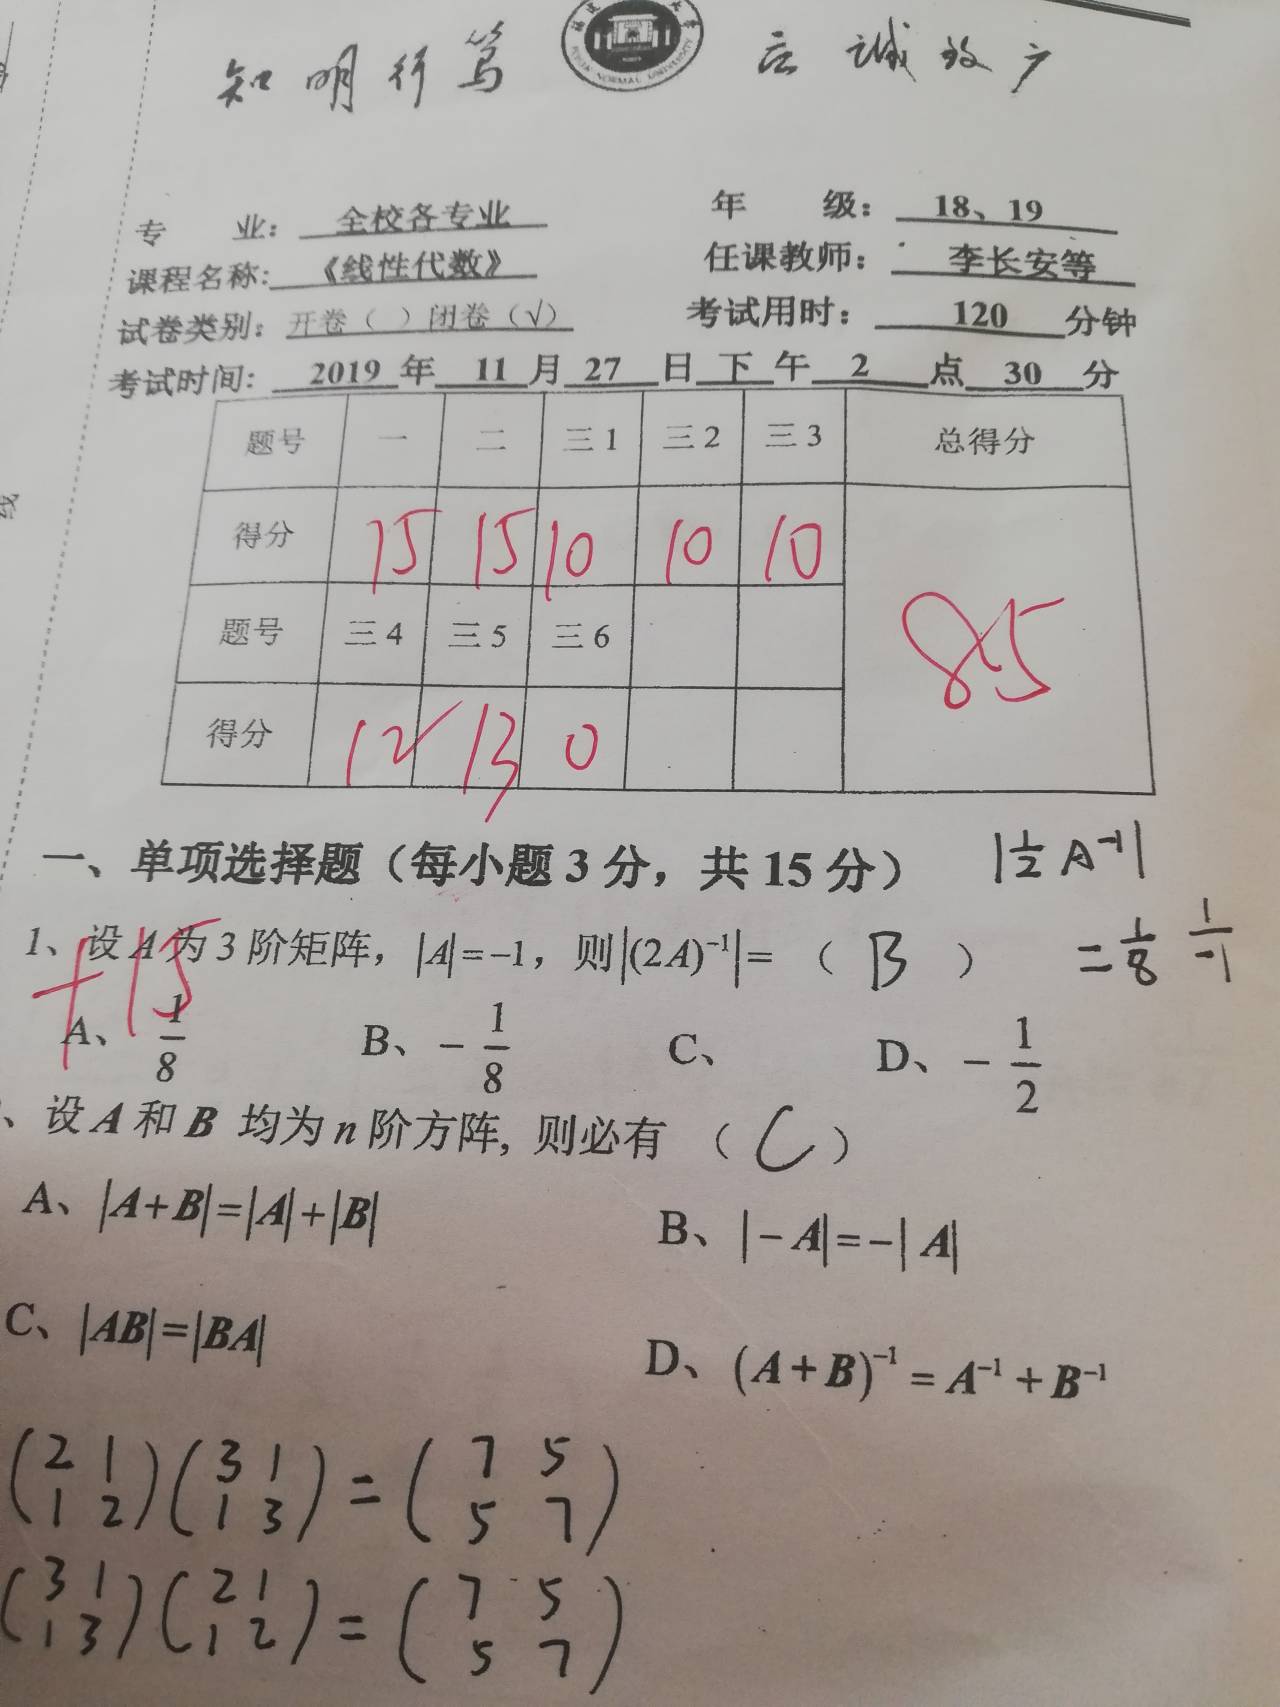 知明行笃
NORMAL UNIVERSITY
诚致广
专 业: 全校各专业 年 级: 18、19
课程名称: 《线性代数》 任课教师: 李长安等
试卷类别: 开卷( )闭卷(√) 考试用时: 120 分钟
考试时间: 2019 年 11 月 27 日 下 午 2 点 30 分
题号 一 二 三1 三2 三3 总得分
得分 15 15 10 10 10 85
题号 三4 三5 三6
得分 12 13 0
线
一、单项选择题(每小题3分,共15分)
|1/2 A⁻¹|
1、设A为3阶矩阵,|A|=-1,则|(2A)⁻¹|=( B )
= 1/8 1/-1
+15
A、1/8 B、-1/8 C、 D、-1/2
、设A和B 均为n阶方阵, 则必有 ( C )
A、|A+B|=|A|+|B| B、|-A|=-|A|
C、|AB|=|BA| D、(A+B)⁻¹=A⁻¹+B⁻¹
(2 1
1 2)(3 1
1 3)=(7 5
5 7)
(3 1
1 3)(2 1
1 2)=(7 5
5 7)